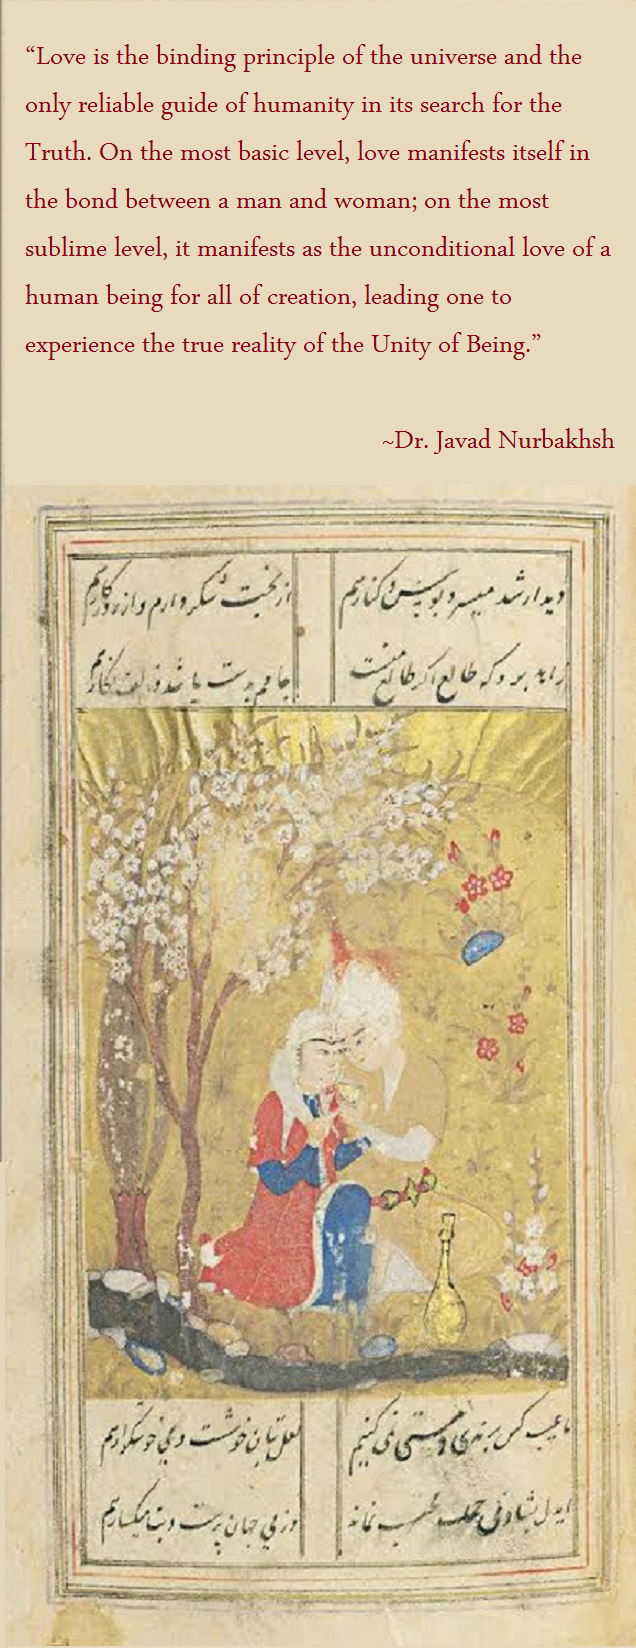 “Love is the binding principle of the universe and the
only reliable guide of humanity in its search for the
Truth. On the most basic level, love manifests itself in
the bond between a man and woman; on the most
sublime level, it manifests as the unconditional love of a
human being for all of creation, leading one to
experience the true reality of the Unity of Being.”
~Dr. Javad Nurbakhsh
دیدار شد میسر و بوس و کنار هم از بخت شکر دارم و از روزگار هم
زاهد برو که طالع اگر طالع منست جامم بدست باشد و زلف نکار هم
ما عیب کس برندی و مستی نمی کنیم لعل بتان خوشست و می خوشکوار هم
ایدل بشارتی محتسب نماند وز می جهان پرست و بت میکسار هم